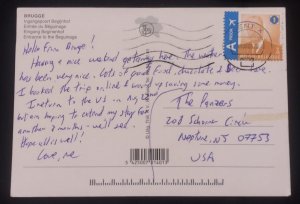 BRUGGE
Ingangspoort Begijnhof
Entrée du Béguinage
Eingang Beginenhof
Entrance to the Beguinage
Hello from Bruge!
Having a nice weekend getaway here. The weather
has been very nice. Lots of great food, chocolate & beer here.
I booked the trip online & wound up saving some money.
I return to the US in my
am hoping to extend my stay for
another 2 months - we'll see.
Hope all is well!
Love, me
A PRIOR
1
The Panzers
208 Circle
Neptune, NJ 07753
USA